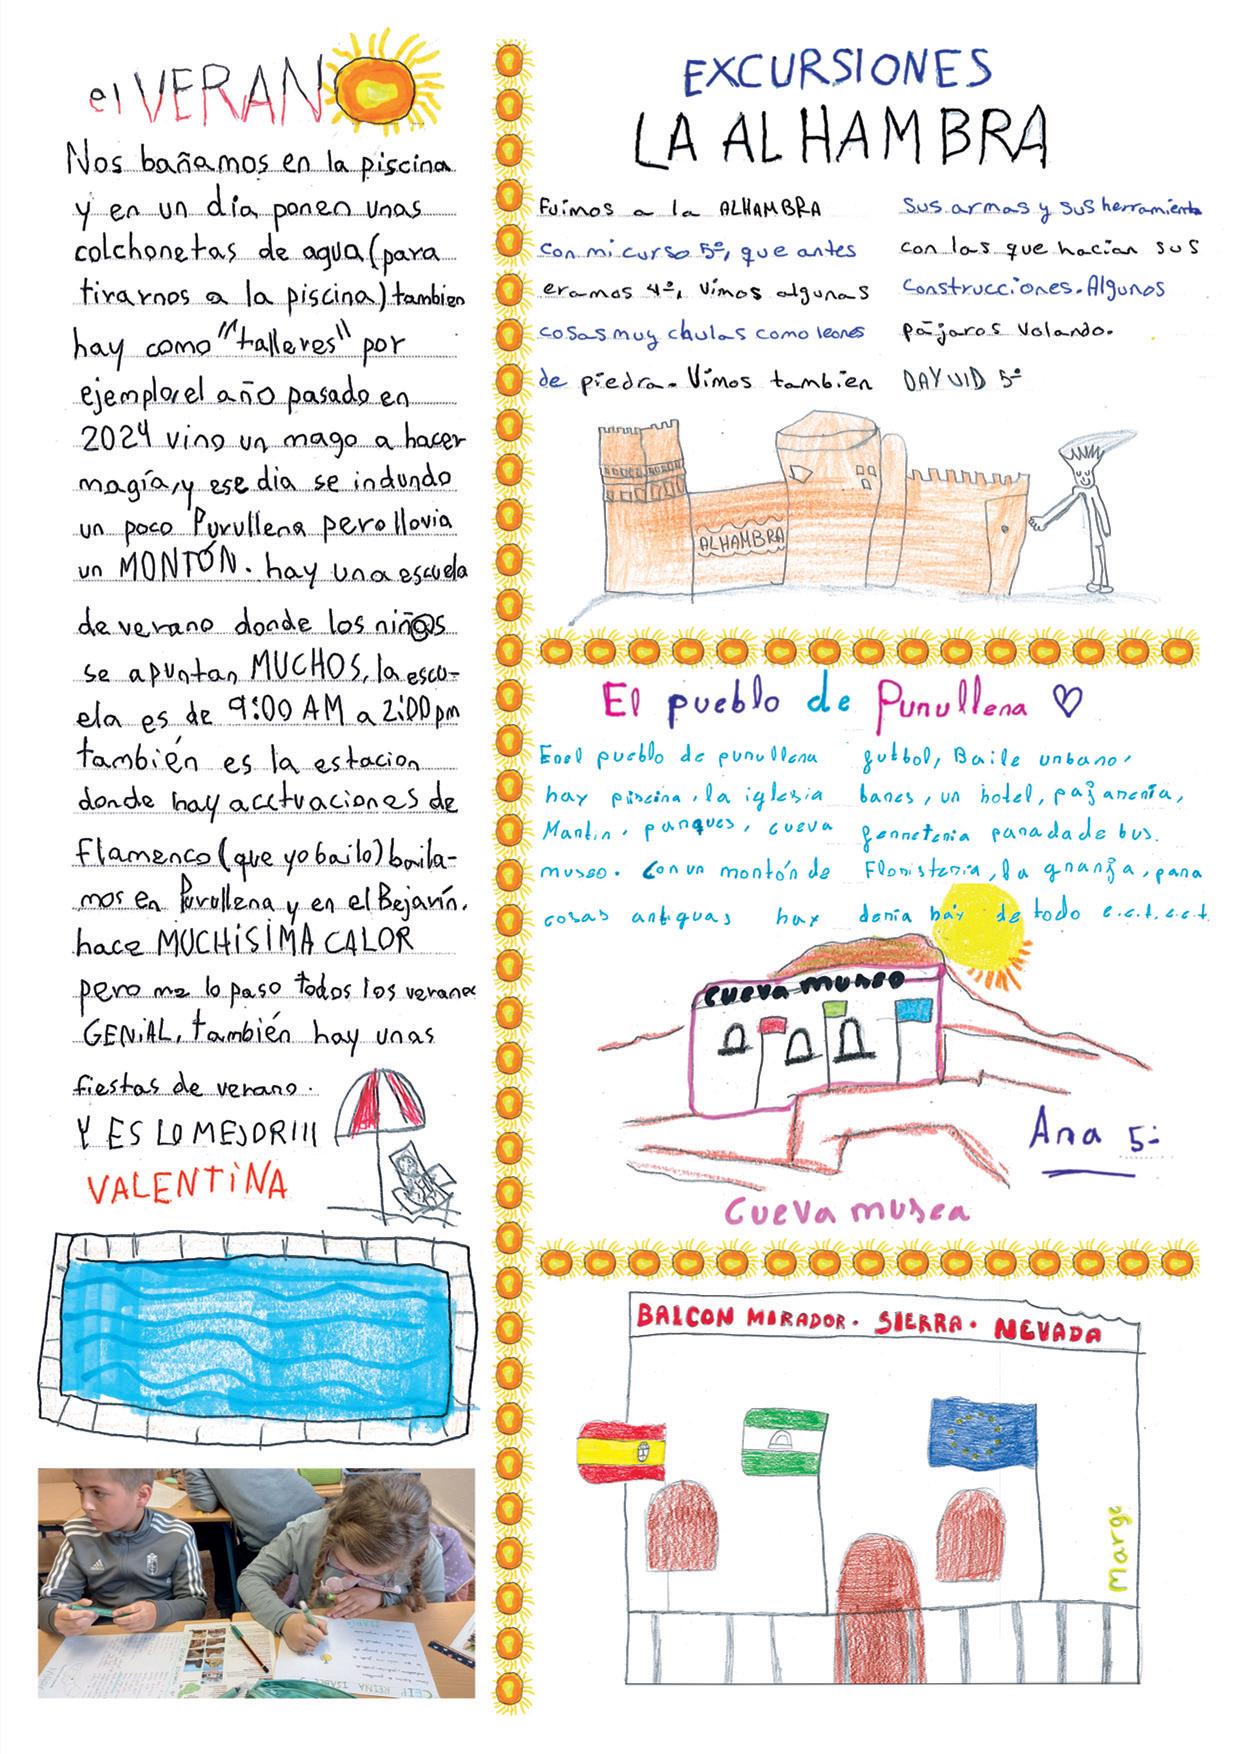 el VERANO
Nos bañamos en la piscina
y en un día, ponen unas
colchonetas de agua (para
tirarnos a la piscina) tambien
hay como "talleres" por
ejemplo, el año pasado en
2024 vino un mago a hacer
magía, y ese dia se indundo
un poco Purullena pero llovia
un MONTÓN. hay una escuela
de verano donde los niñ@s
se apuntan MUCHOS, la escu-
ela es de 9:00 AM a 2:00 pm
también es la estacion
donde hay acctvaciones de
Flamenco (que yo bailo) baila-
mos en Purullena y en el Bejarín.
hace MUCHiSiMA CALOR
pero me lo paso todos los veranos
GENiAL, también hay unas
fiestas de verano.
Y ES LO MEJOR!!!
VALENTiNA
EXCURSIONES
LA ALHAMBRA
Fuimos a la ALHAMBRA
con mi curso 5º, que antes
eramos 4º, vimos algunas
cosas muy chulas como leones
de piedra. Vimos tambien
Sus armas y sus herramienta
con las que hacían sus
Construcciones. Algunos
pájaros volando.
DAYVID 5º
ALHAMBRA
El pueblo de Purullena
En el pueblo de purullena
hay piscina, la iglesia
Martin, parques, cueva
museo. Con un montón de
cosas antiguas hay
futbol, Baile urbano,
bares, un hotel, pajarería,
ferreteria parada de bus.
Floristeria, la granja, pana
deria hay de todo e.c.t. e.c.t.
cueva museo
Ana 5º
Cueva musea
BALCON MIRADOR. SIERRA. NEVADA
Margi
CEIP REINA ISABEL